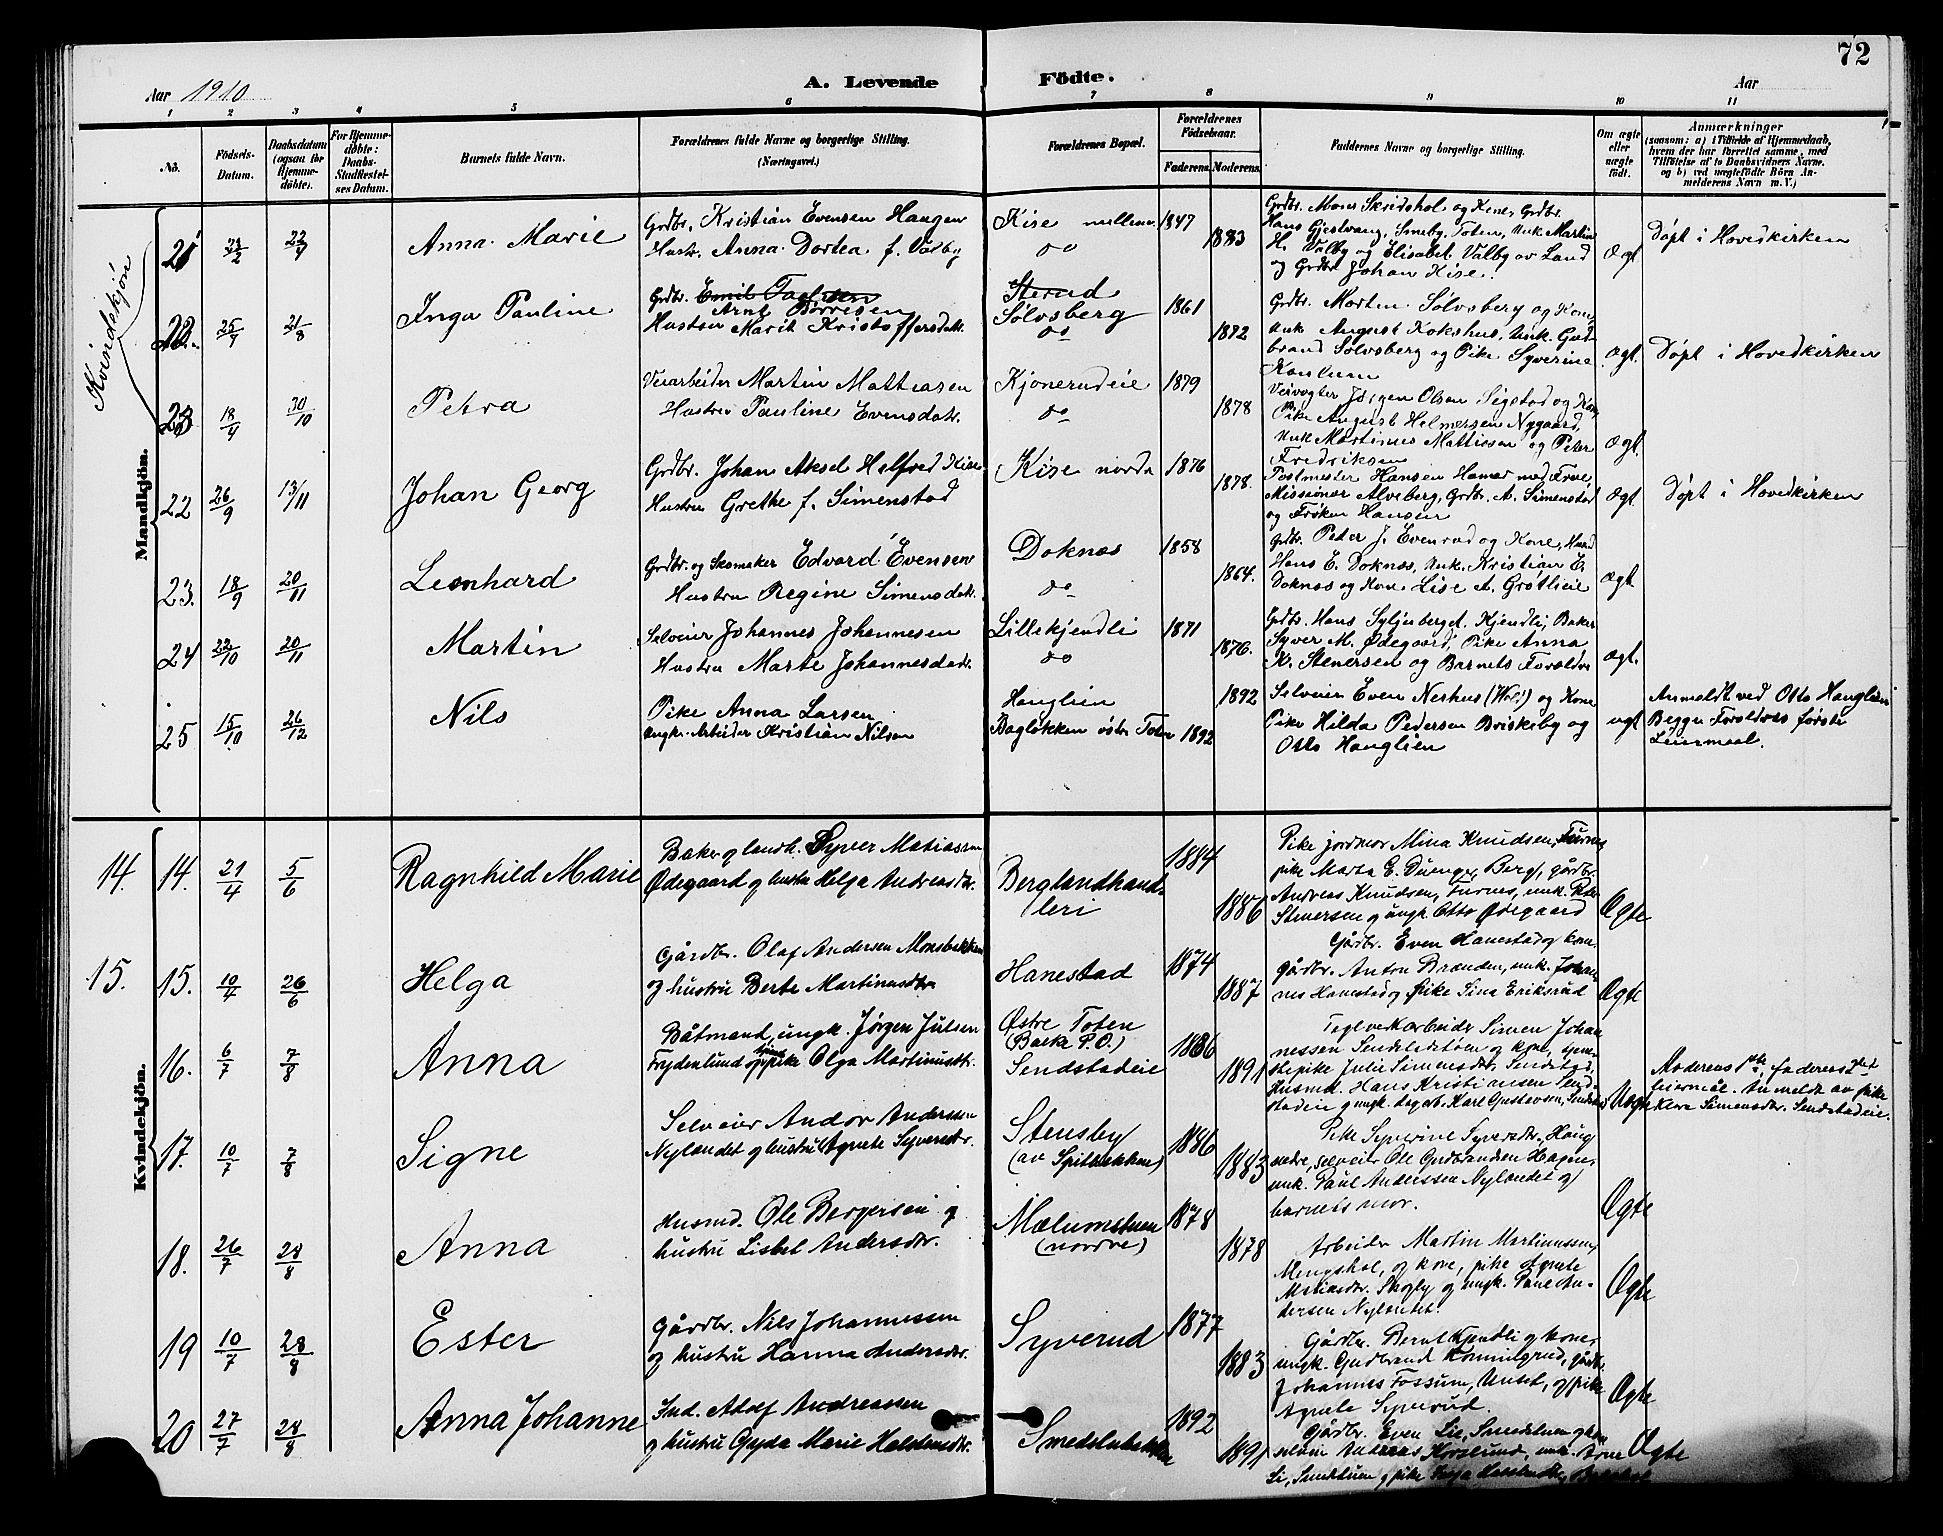 72
Aar 1910
A. Levende Födte.
Aar
1 2 3 4 5 6 7 8 9 10 11
No.
Födsels-Datum.
Daabsdatum (ogsaa for Hjemmedöbte).
For Hjemmedöbte: Daabs-Stadfæstelses Datum.
Barnets fulde Navn.
Forældrenes fulde Navne og borgerlige Stilling. (Næringsvei.)
Forældrenes Bopæl.
Forældrenes Födselsaar.
Faderens. Moderens.
Faddernes Navne og borgerlige Stilling.
Om ægte eller uægte födt.
Anmærkninger
(saasom: a) i Tilfælde af Hjemmedaab, hvem der har forrettet samme, med Tilföielse af to Daabsvidners Navne, og b) ved uægtefödte Börn Anmelderens Navn m. V.)
Kvindekjön
Mandkjön.
21 22/4 Anna Marie
Grdbr. Kristian Evensen Haugen
Hustr. Anna Dortea f. Valby
Kise mellem 1847
do 1883
Grdbr. Mons Skridshol og Kone, Grdbr.
Hans Gjestvang, Smeby, Toten, Unk Martin
H. Valby og Elisabet Valby av Land
og Grdbr Johan Kise.
Ægt
Döpt i Hovedkirken
22. 25/7 21/8 Inga Pauline
Grdbr. Emil
Arne Börresen
Hustru Marit Kristoffersdatr.
Sterud
Sölvsberg 1861
do 1872
Grdbr. Morten Sölvsberg og Kone,
Unk August Kokshus, Unk. Gudbrand Sölvsberg og Pike Syverine
Ægt.
Döpt i Hovedkirken
23 18/9 30/10 Petra
Veiarbeider Martin Mattiasen
Hustru Pauline Evensdatr.
Kjonerudeie 1879
do 1878
Veivogter Jörgen Olsen Sigstad og Kone,
Pike August Helmersen Nygaard,
Unk Martinus Mattissen og Peter
Fredriksen
Ægt.
22 26/9 13/11 Johan Georg
Grdbr. Johan Aksel Helfred Kise
Hustru Grethe f. Simenstad
Kise nordr 1876
1878.
Postmester Hansen Hamar med Frue,
Missionær Alveberg, Grdbr. A. Simenstad
og Fröken Hansen
Ægt.
Döpt i Hovedkirken
23. 18/9 20/11 Leonhard
Grdbr. og Skomaker Edvard Evensen
Hustru Regine Simensdatr.
Doknæs 1858
do 1864.
Grdbr. Peter J. Evenrud og Kone,
Hans E. Doknæs, Unk. Kristian E.
Doknæs og Kone Lise A. Grötlieie
Ægt
24 22/10 20/11 Martin
Selveier Johannes Johannesen
Hustru Marte Johannesdatr.
Lillekjendli 1871
do 1876.
Grdbr. Hans Syljuberget, Kjendli, Baker
Syver M. Ödegaard, Pike Anna
K. Stenersen og Barnets Forældre
Ægt.
25 15/10 26/12 Nils
Pike Anna Larsen
Ungk. Arbeider Kristian Nilsen
Hauglien 1892
Baglökken östre Toten 1892
Selveier Even Neshus (Wol.) og Kone
Pike Hilda Pedersen Briskeby og
Otto Hauglien
uægt
Anmeldt ved Otto Hauglien
Begge Forældres förste
Leiermaal.
Kvindekjön.
14. 14. 21/4 5/6 Ragnhild Marie
Baker og landh. Syver Matiassen
Ödegaard og hustru Helga Andreasdtr.
Berglandhandleri 1884
1886
Pike jordmor Mina Knudsen, Furnes
pike Marta E. Duenger, Berg, gårdbr.
Andreas Knudsen, Furnes, unk. Peter
Stenersen og ungk. Otto Ödegaard
Ægte
15. 15. 10/4 26/6 Helga
Gårdbr. Olaf Andersen Monsbakken
og hustru Berte Martinusdtr
Hanestad 1874
1887
Gårdbr. Even Hanestad og kone,
gårdbr. Anton Brænden, unk. Johannes Hanestad og Pike Sina Eriksrud
Ægte
16. 6/7 7/8 Anna
Båtmand, ungk. Jörgen Julsen
Frydenlund og pike Olga Martinusdtr.
Östre Toten
(Balke P.O.) 1886
Sendstadeie 1891
Teglverkarbeider Simen Johannessen Sendstadstöen og kone, tjenestepike Julie Simensdtr. Sendstad,
Husmd. Hans Kristiansen Sendstadeie og ungk. dagarb. Karl Gustavsen, Sendstad
Uægte
Moderens 1ste, faderens 2det
leiermål. Anmeldt av pike
Klara Simensdtr. Sendstadeie.
17. 10/7 7/8 Signe
Selveier Andor Andersen
Nylandet og hustru Agnete Syversdtr.
Stensby 1886
(av Spitalökken) 1883
Pike Syverine Syversdtr. Haug
nedre, selveier Ole Gudbrandsen Hagen,
unk. Paul Andersen Nylandet og
barnets mor.
Ægte
18. 26/7 28/8 Anna
Husmd. Ole Bergersen og
hustru Lisbet Andersdtr.
Mælumstuen 1878
(nordre) 1878
Arbeider Martin Martinussen,
Mengshol, og kone, pike Agnete
Matiasdtr. Skogly og ungk. Paul Andersen Nylandet.
Ægte
19 10/7 28/8 Ester
Gårdbr. Nils Johannessen
og hustru Hanna Andersdtr.
Syverud 1877
1883
Gårdbr. Bernt Kjendli og kone,
ungk. Gudbrand Komningrud, gårdbr.
Johannes Fossum, Unset, og pike
Agnete Syverud.
Ægte
20 27/7 28/8 Anna Johanne
Ind. Adolf Andreassen
og hustru Gyda Marie Halstensdtr.
1892
1891
Gårdbr. Even Lie, Smedstuen og kone
Ægte